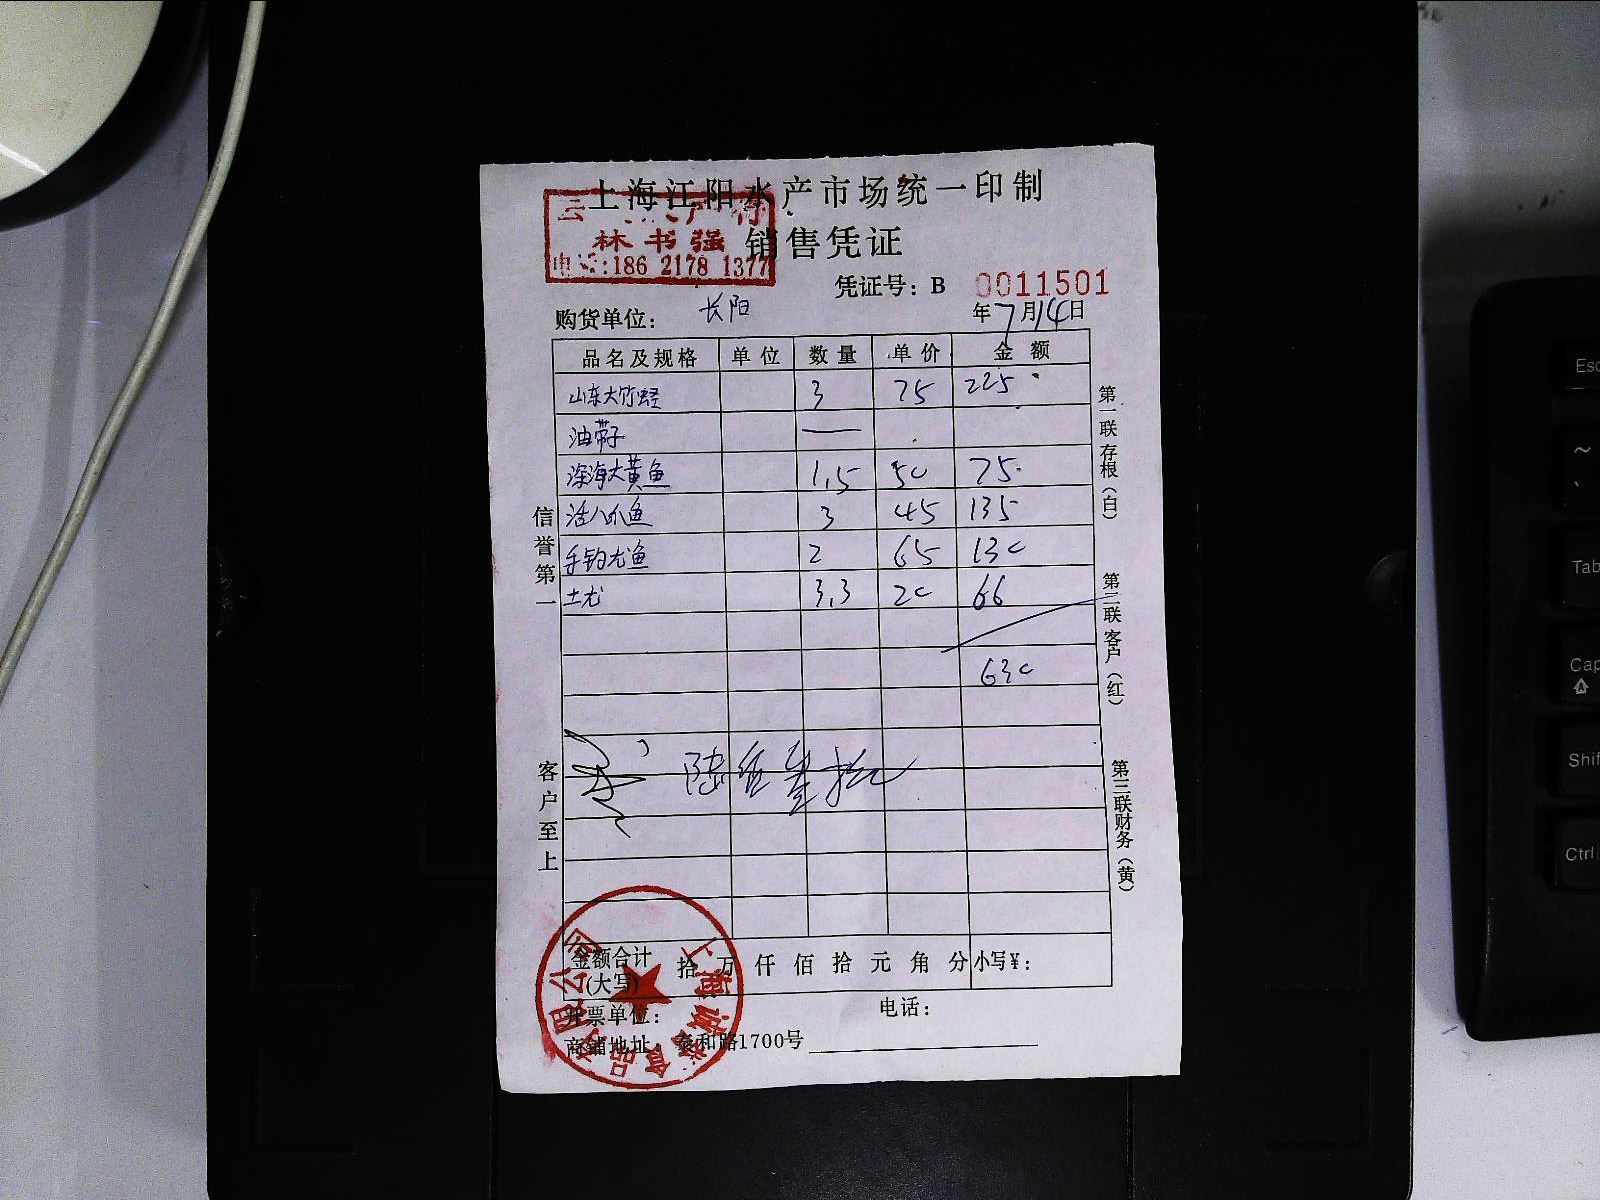 上海江阳水产市场统一印制
林书强
销售凭证
:186 2178 1377
凭证号：B 0011501
购货单位： 长阳
年7月14日
品名及规格 单位 数量 单价 金额
山东大竹蛏 3 75 225
油带子 —
深海大黄鱼 1.5 50 75
活八爪鱼 3 45 135
手钓尤鱼 2 65 130
土尤 3.3 20 66
630
陆佰叁拾
信誉第一
客户至上
第一联存根（白）
第二联客户（红）
第三联财务（黄）
金额合计 (大写) 拾 万 仟 佰 拾 元 角 分 小写¥：
开票单位： 电话：
商铺地址：泰和路1700号
Esc
~
Tab
Cap
Shif
Ctrl